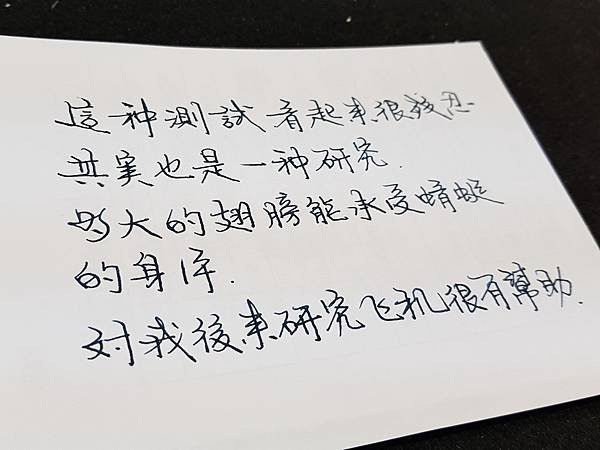 這种測試看起来很残忍
其实也是一种研究.
多大的翅膀能承受蜻蜓
的身体.
对我後来研究飞机很有幫助.